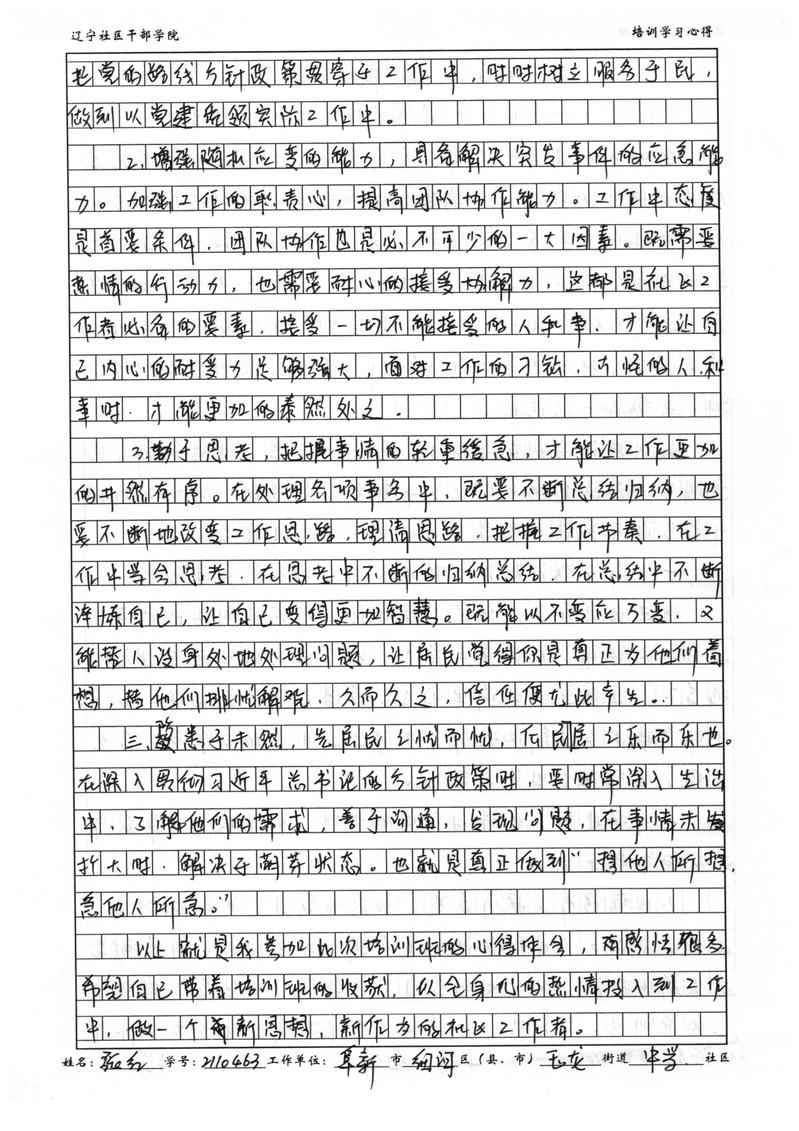 辽宁社区干部学院 培训学习心得
把党的路线方针政策贯穿于工作中，时时树立服务于民，
做到以党建引领实际工作中。
2.增强随机应变的能力，具备解决突发事件的应急能
力。加强工作的职责心，提高团队协作能力。工作中态度
是首要条件，团队协作也是必不可少的一大因素。既需要
热情的行动力，也需要耐心的接受协解力，这都是社区工
作者必备的要素，接受一切不能接受的人和事，才能让自
己内心的耐受力足够强大，面对工作的刁钻，古怪的人和
事时，才能更加的泰然处之。
3.勤于思考，把握事情的轻重缓急，才能让工作更加
的井然有序。在处理各项事务中，既要不断总结归纳，也
要不断地改变工作思路，理清思路，把握工作节奏，在工
作中学会思考，在思考中不断的归纳总结，在总结中不断
淬炼自己，让自己变得更加智慧。既能以不变应万变，又
能替人设身处地处理问题，让居民觉得你是真正为他们着
想，替他们排忧解难，久而久之，信任便尤此幸生。
三、患于未然，先居民之忧而忧，后民居之乐而乐也。
在深入贯彻习近平总书记的方针政策时，要时常深入生活
中，了解他们的需求，善于沟通，发现问题，在事情未发
扩大时，解决于萌芽状态。也就是真正做到“想他人所想，
急他人所急。”
以上就是我参加此次培训班的心得体会，有感悟很多
希望自己带着培训班的收获，以全身心的热情投入到工作
中，做一个有新思想，新作为的社区工作者。
姓名： 学号：2110463 工作单位：阜新 市 细河 区（县、市） 玉龙 街道 中学 社区